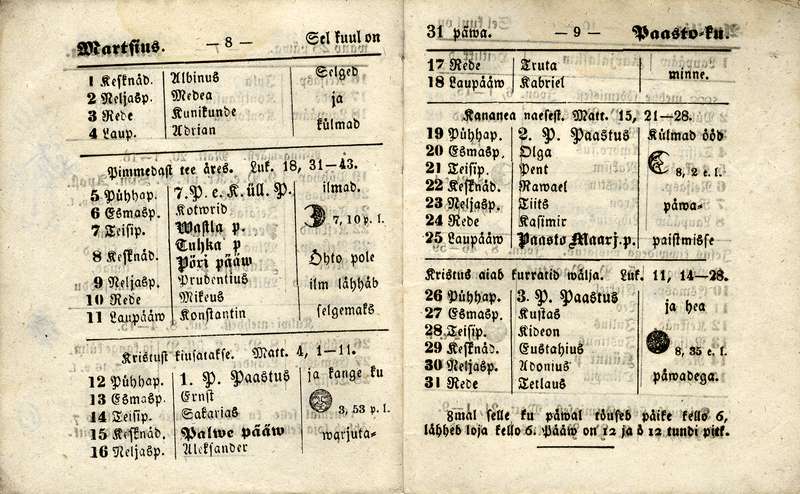 Martsius. — 8 — Sel kuul on
1 Kesknäd. Albinus Selged
2 Neljasp. Medea ja
3 Rede Kunikunde
4 Laup. Adrian külmad
Pimmedast tee äres. Luk. 18, 31—43.
5 Pühhap. 7. P. e. K. üll. P. ilmad.
6 Esmasp. Kotwrid
7 Teisip. Wastla p. 7, 10 p. l.
Tuhka p
8 Kesknäd. Pöri pääw Öhto pole
9 Neljasp. Prudentius ilm lähhäb
10 Rede Mikeus
11 Laupääw Konstantin selgemaks
Kristust kiusatakse. Matt. 4, 1—11.
12 Pühhap. 1. P. Paastus ja kange ku
13 Esmasp. Ernst
14 Teisip. Sakarias 3, 53 p. l.
15 Kesknäd. Palwe pääw warjuta-
16 Neljasp. Aleksander
31 päwa. — 9 — Paasto-ku.
17 Rede Truta minne.
18 Laupääw Kabriel
Kananea naesest. Matt. 15, 21—28.
19 Pühhap. 2. P. Paastus Külmad ööd
20 Esmasp. Olga
21 Teisip. Pent 8, 2 e. l.
22 Kesknäd. Rawael
23 Neljasp. Tiits päwa-
24 Rede Kasimir
25 Laupääw Paasto Maarj. p. paistmisse
Kristus aiab kurratid wälja. Luk. 11, 14—28.
26 Pühhap. 3. P. Paastus ja hea
27 Esmasp. Kustas
28 Teisip. Kideon
29 Kesknäd. Eustahius 8, 35 e. l.
30 Neljasp. Adonius päwadega.
31 Rede Tetlaus
1mal selle ku päwal töuseb päike kello 6,
lähheb loja kello 6. Pääw on 12 ja ö 12 tundi pitk.